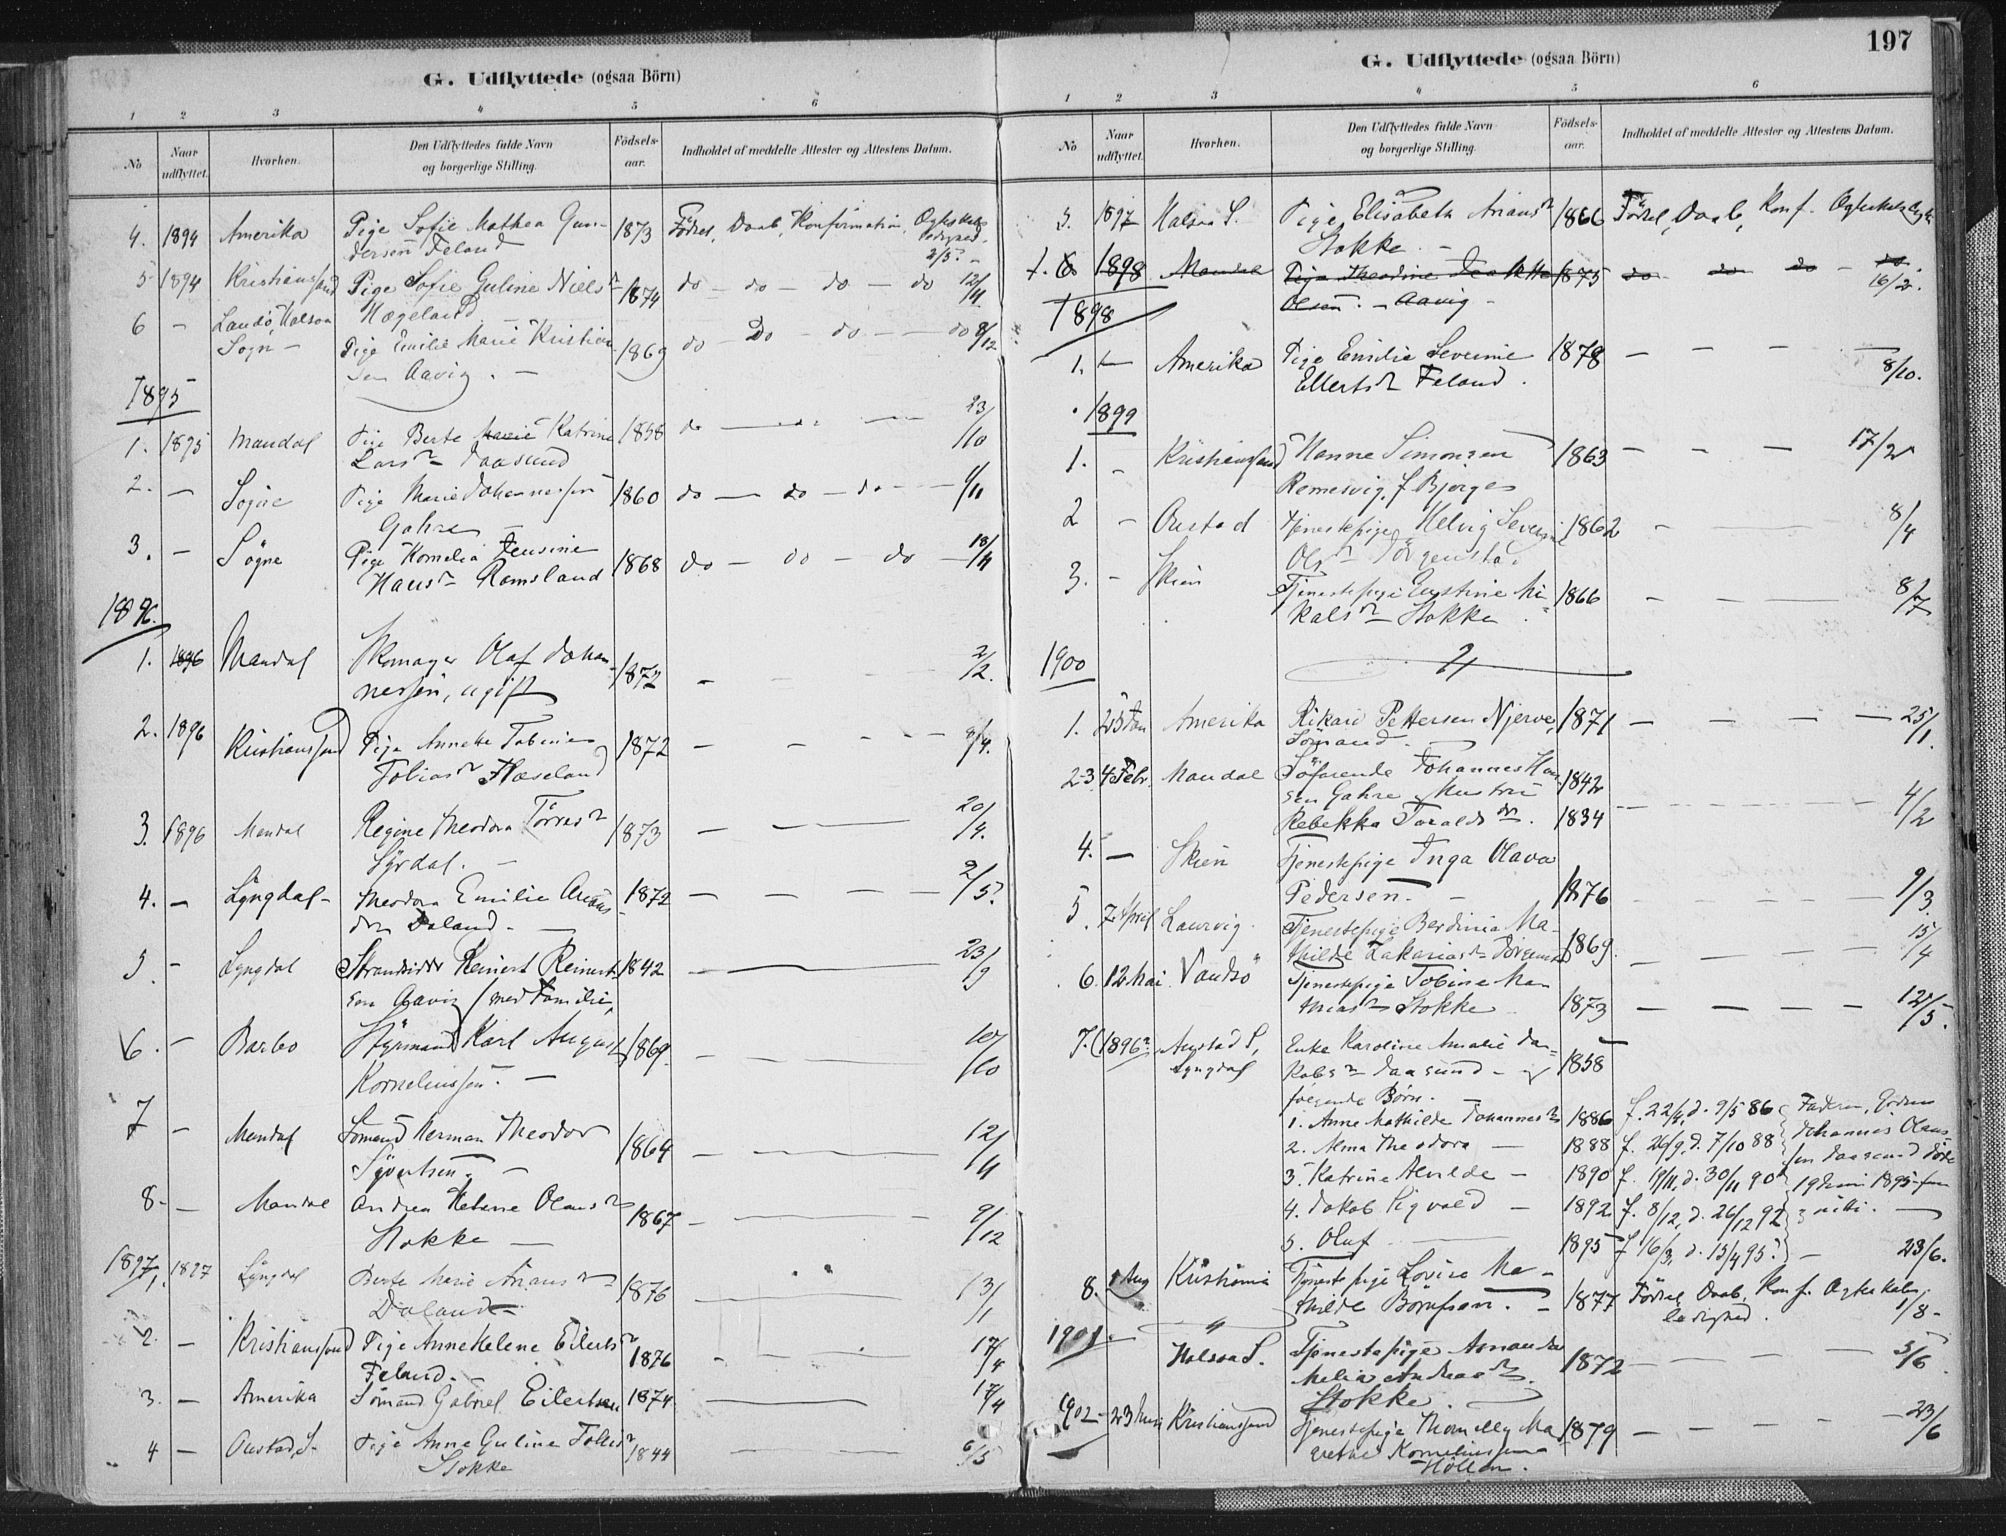 G. Udflyttede (ogsaa Börn)
1 2 3 4 5 6
No Naar udflyttet. Hvorhen. Den Udflyttedes fulde Navn og borgerlige Stilling. Födsels-aar. Indholdet af meddelte Attester og Attestens Datum.
4. 1894 Amerika Pige Sofie Mathea Gun- 1873 Födsel, Daab, Konfirmation,
dersen Feland 2/5
5 1894 Kristianssand Pige Sofie Guline Niels 1874 do - do - do - do 12/11
Hægeland
6 - Landö, Halsaa
Sogn - Pige Emilie Marie Kristian 1869 do - Do - do - do 8/12
sen Aavig. -
1895
1. 1895 Mandal Pige Berte Marie Katrine 1858 do 23/10
Lars Daasund
2. - Sögne Pige Marie Johannessen 1860 do - do - do
Gahre
3. - Søgne Pige Kornelia Jensine 1868 do - do - do - 18/11
Hans Ramsland
1896.
1. 1896 Mandal Skomager Olaf Johan- 1872 2/2.
nessen, ugift
2. 1896 Kristianssand Pige Annette Tobine 1872
Tobias Flæseland
3. 1896 Mandal Regine Theodora Törres 1873 20/4.
Syrdal. -
4. - Lyngdal - Theodora Emilie 1872 2/5.
Daland. -
5. - Lyngdal Strandsidder Reinert Reinert 1842 23/9
sen Aavig (med Familie)
6. - Barbo Styrmand Karl August 1869. /10
Korneliussen. -
7 - Mandal Sømand Herman Theodor 1864 12/11
Syvertsen. -
8. - Mandal Andrea Helene Olaus 1867 9/12
Stokke -
1897
1. 1897 Lyngdal Berte Marie 1876 13/1
Daland -
2. - Kristianssand Pige Anne Helene Eilerts 1876 17/4
Feland. -
3. - Amerika Sömand Gabriel Eilertsen 1874 17/4
4 - Oustad S. Pige Anne Guline Tolles 1844 6/5
Stokke
197
G. Udflyttede (ogsaa Börn)
1 2 3 4 5 6
No Naar udflyttet. Hvorhen. Den Udflyttedes fulde Navn og borgerlige Stilling. Födsels-aar. Indholdet af meddelte Attester og Attestens Datum.
5. 1897 Halsaa S. Pige Elisabeth 1866 Födsel, Daab, Konf.
Stokke. -
1898 Mandal Pige Theodine 1875 do do do - do.
Olsen. - Aavig - 16/2.
1898
1. - Amerika Pige Emilie Severine 1878 - - - - 8/10.
Ellerts Feland.
1899
1. - Kristianssand Hanne Simonsen 1863 - - - 17/2
Remesvig, f. Bjerges
2 - Oustad Tjenestepige Helvig 1862 - 8/4
Ols Jörgenstad
3. - Skien Tjenestepige 1866 - - 8/7
kals Stokke.
1900
1. 25 Jan Amerika Rikard Pettersen Njerve, 1871 - - - - 25/1.
Sömand. -
2-3 4 Febr. Mandal Söfarende Johannes Han 1842
sen Gahre & Hustru
Rebekka Taralds. 1834 4/2
4. - Skien Tjenestepige Inga Olava
Pedersen. - 1876 9/3.
5. 7 April Laurvig. Tjenestepige Berdinia Ma-
thilde Zakarias 1869. 15/4
6. 12 Mai Vandsö Tjenestepige Tobine
Stokke 1873 12/5.
7. (1896?) Austad S, Enke Karoline Amalie Ja-
Lyngdal kobs Daasund - og 1858
følgende Börn.
1. Anne Mathilde Johannes 1886 f. 22/4, d. 9/5 86 Faderen,
2. Alma Theodora - 1888 f. 26/9, d. 7/10 88 Johannes Olaus-
3. Katrine Alvilde - 1890 f. 19/11, d. 30/11 90 sen Daasund döde
4. Jakob Sigvald - 1892 f. 8/12, d. 26/12 92 19 Juni 1895
5. Oluf 1895 f 16/3, d. 15/4 95. - 23/6.
8. 1 Aug Kristiania Tjenestepige Lovise Ma-
thilde Börufsen. - 1877 Födsel, Daab, Konf.
ledighed. 1/8 -
1901.
Halsaa S. Tjenestepige Amanda
Melia Andreas. 1872 - - - - 5/6
Stokke.
1902 - 23 Juni Kristianssand Tjenestepige Thomelly Ma 1879 - - - 23/6
rethe Korneliussen
Höllen.